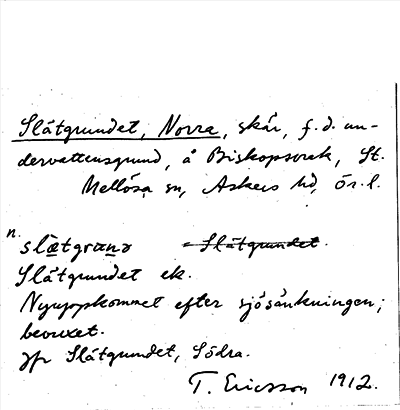 Slätgrundet, Norra, skär, f.d. un-
dervattensgrund, å Biskopsvrak, St.
Mellösa sn, Askers hd, Ör. l.
n.
slætgrɯnə Slätgrundet.
Slätgrundet ek.
Nyuppkommet efter sjösänkningen;
bevuxet.
Jfr Slätgrundet, Södra.
T. Ericsson 1912.